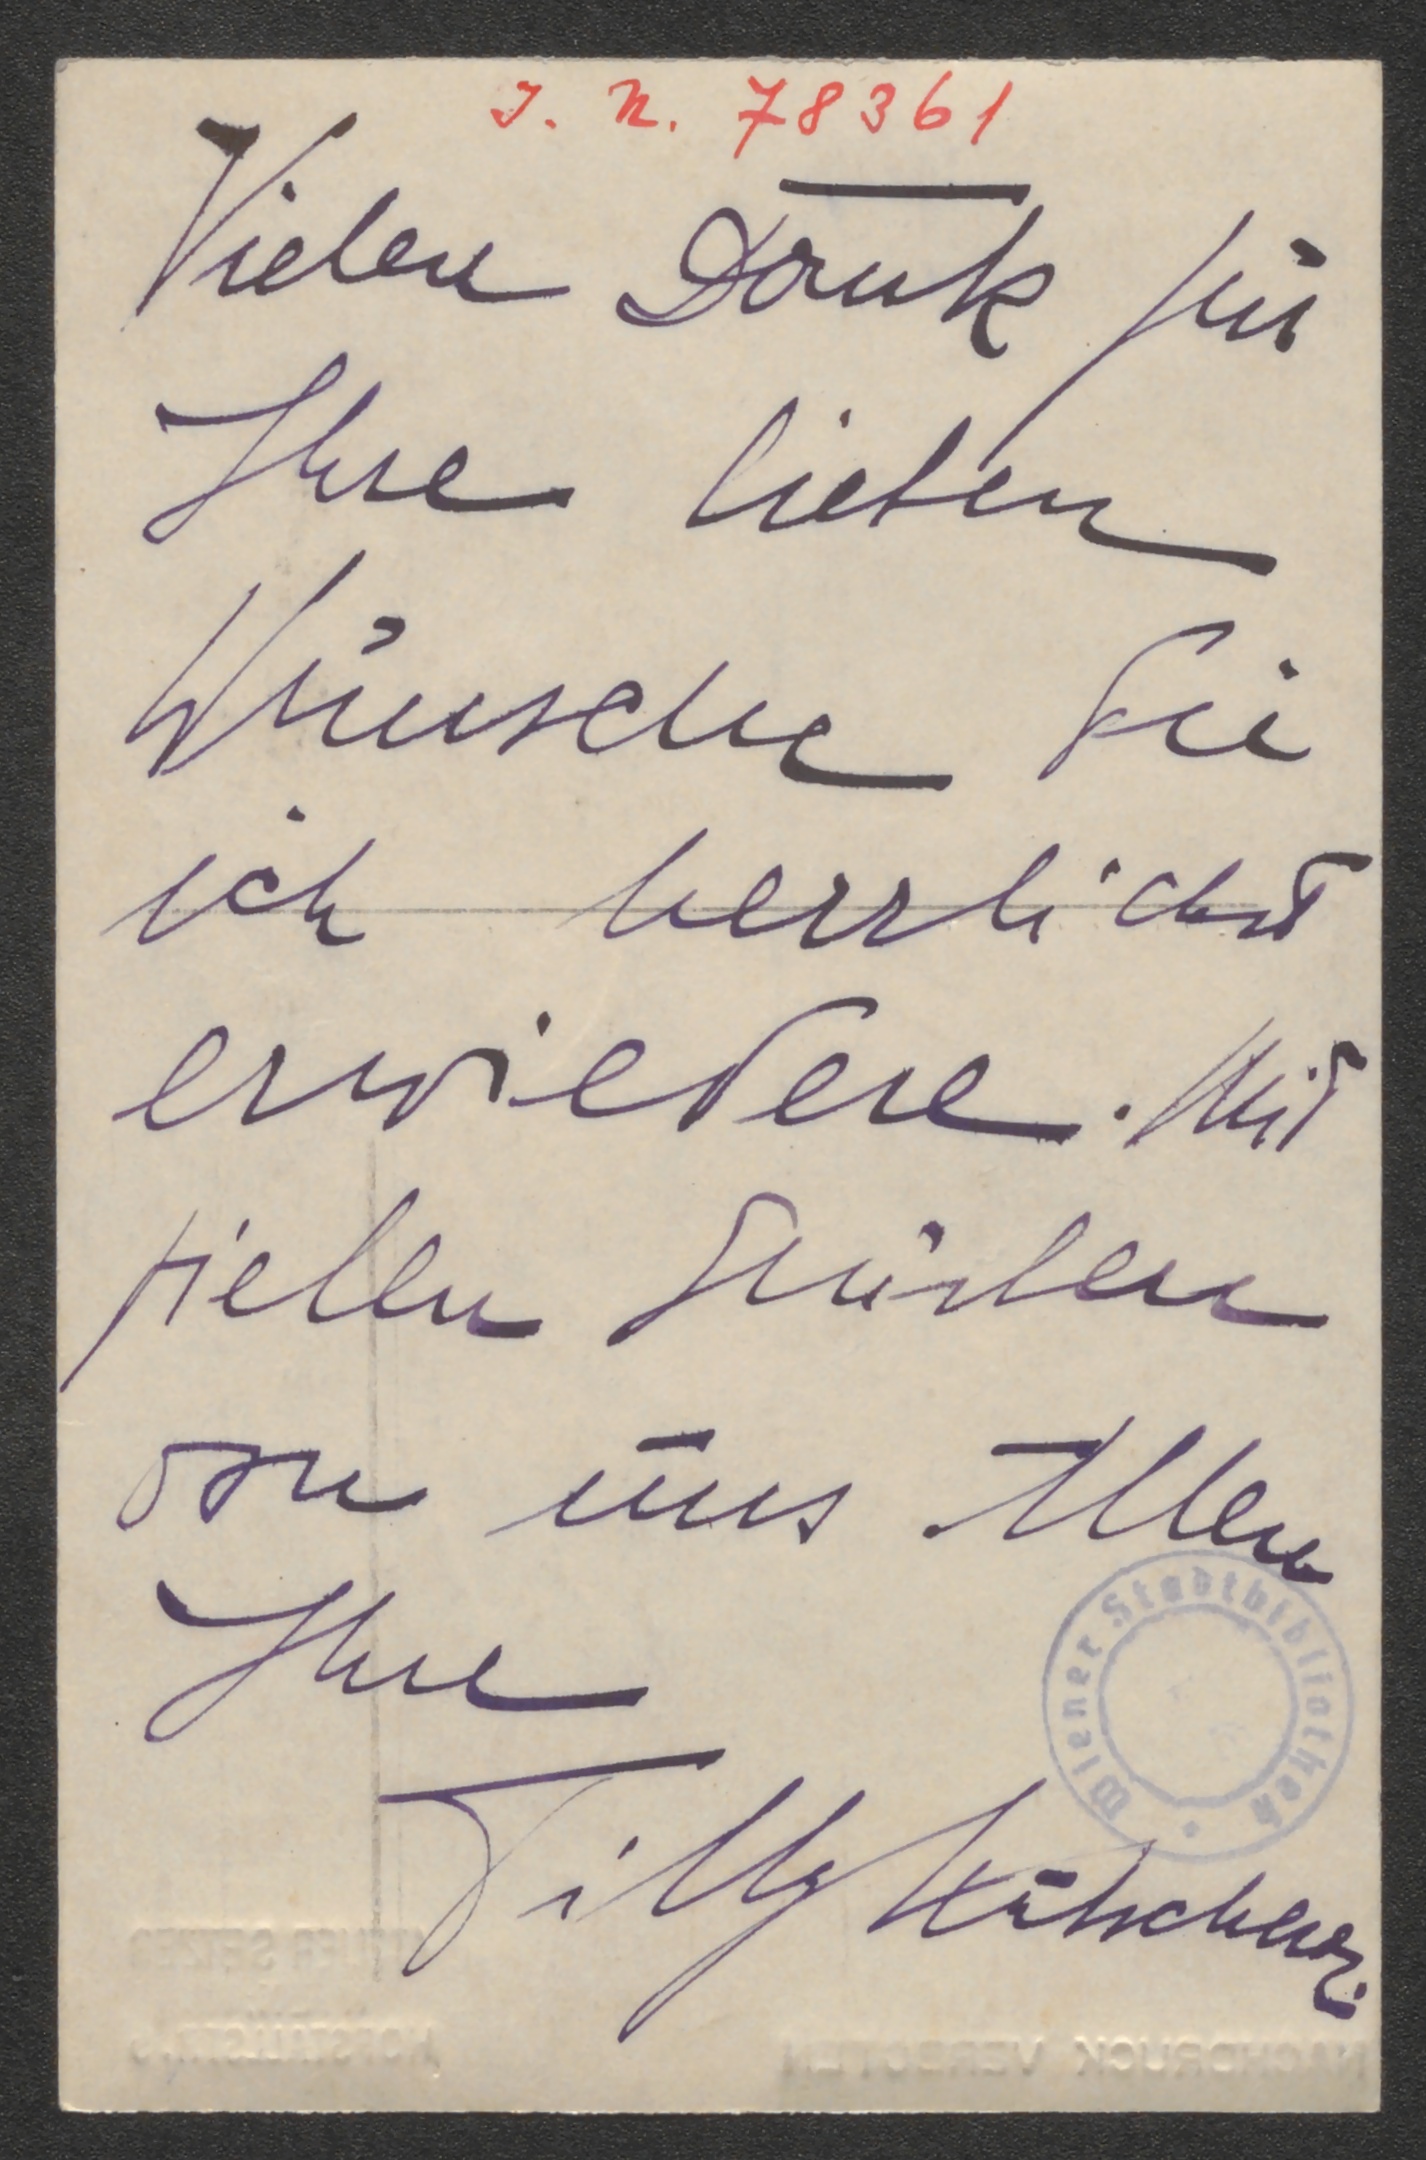 J. N. 78361
Vielen Dank für
Ihre lieben
Wünsche die
ich herzlichst
erwiedere. Mit
vielen Grüßen
von uns Allen
Ihre
Tilly Kutschera
Wiener Stadtbibliothek
HOFSTALLSTR. 5
NACHDRUCK VERBOTEN